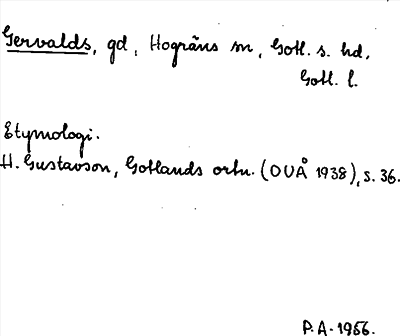 Gervalds, gd, Hogräns sn, Gotl. s. hd,
Gotl. l.
Etymologi.
H. Gustavson, Gotlands ortn. (OUÅ 1938), s. 36.
P.A. 1956.